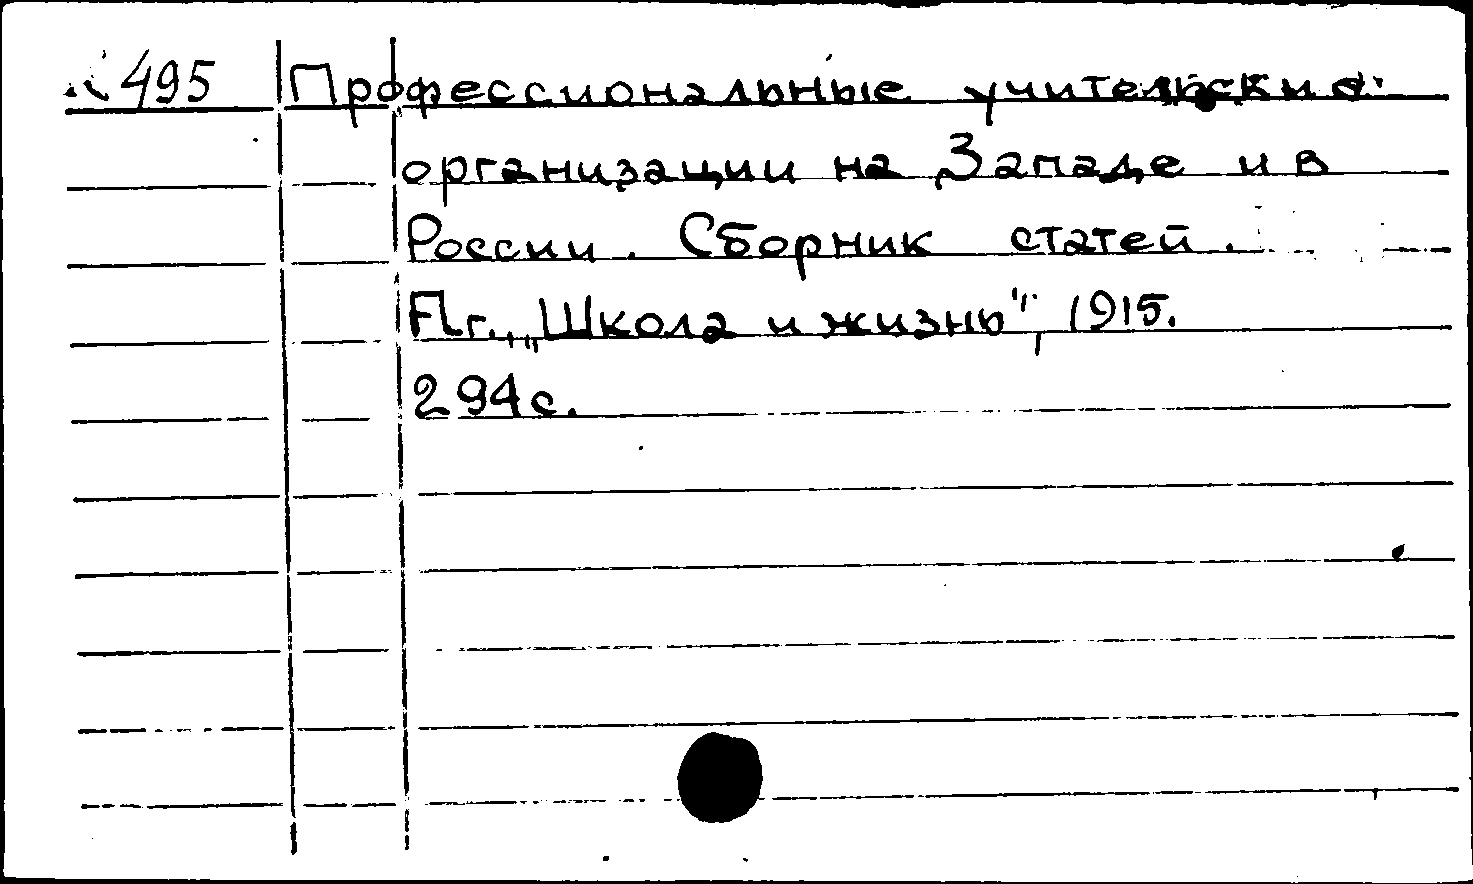 495 Профессиональные учительские
организации на Западе и в
России. Сборник статей.
Пг., „Школа и жизнь", 1915.
294 с.